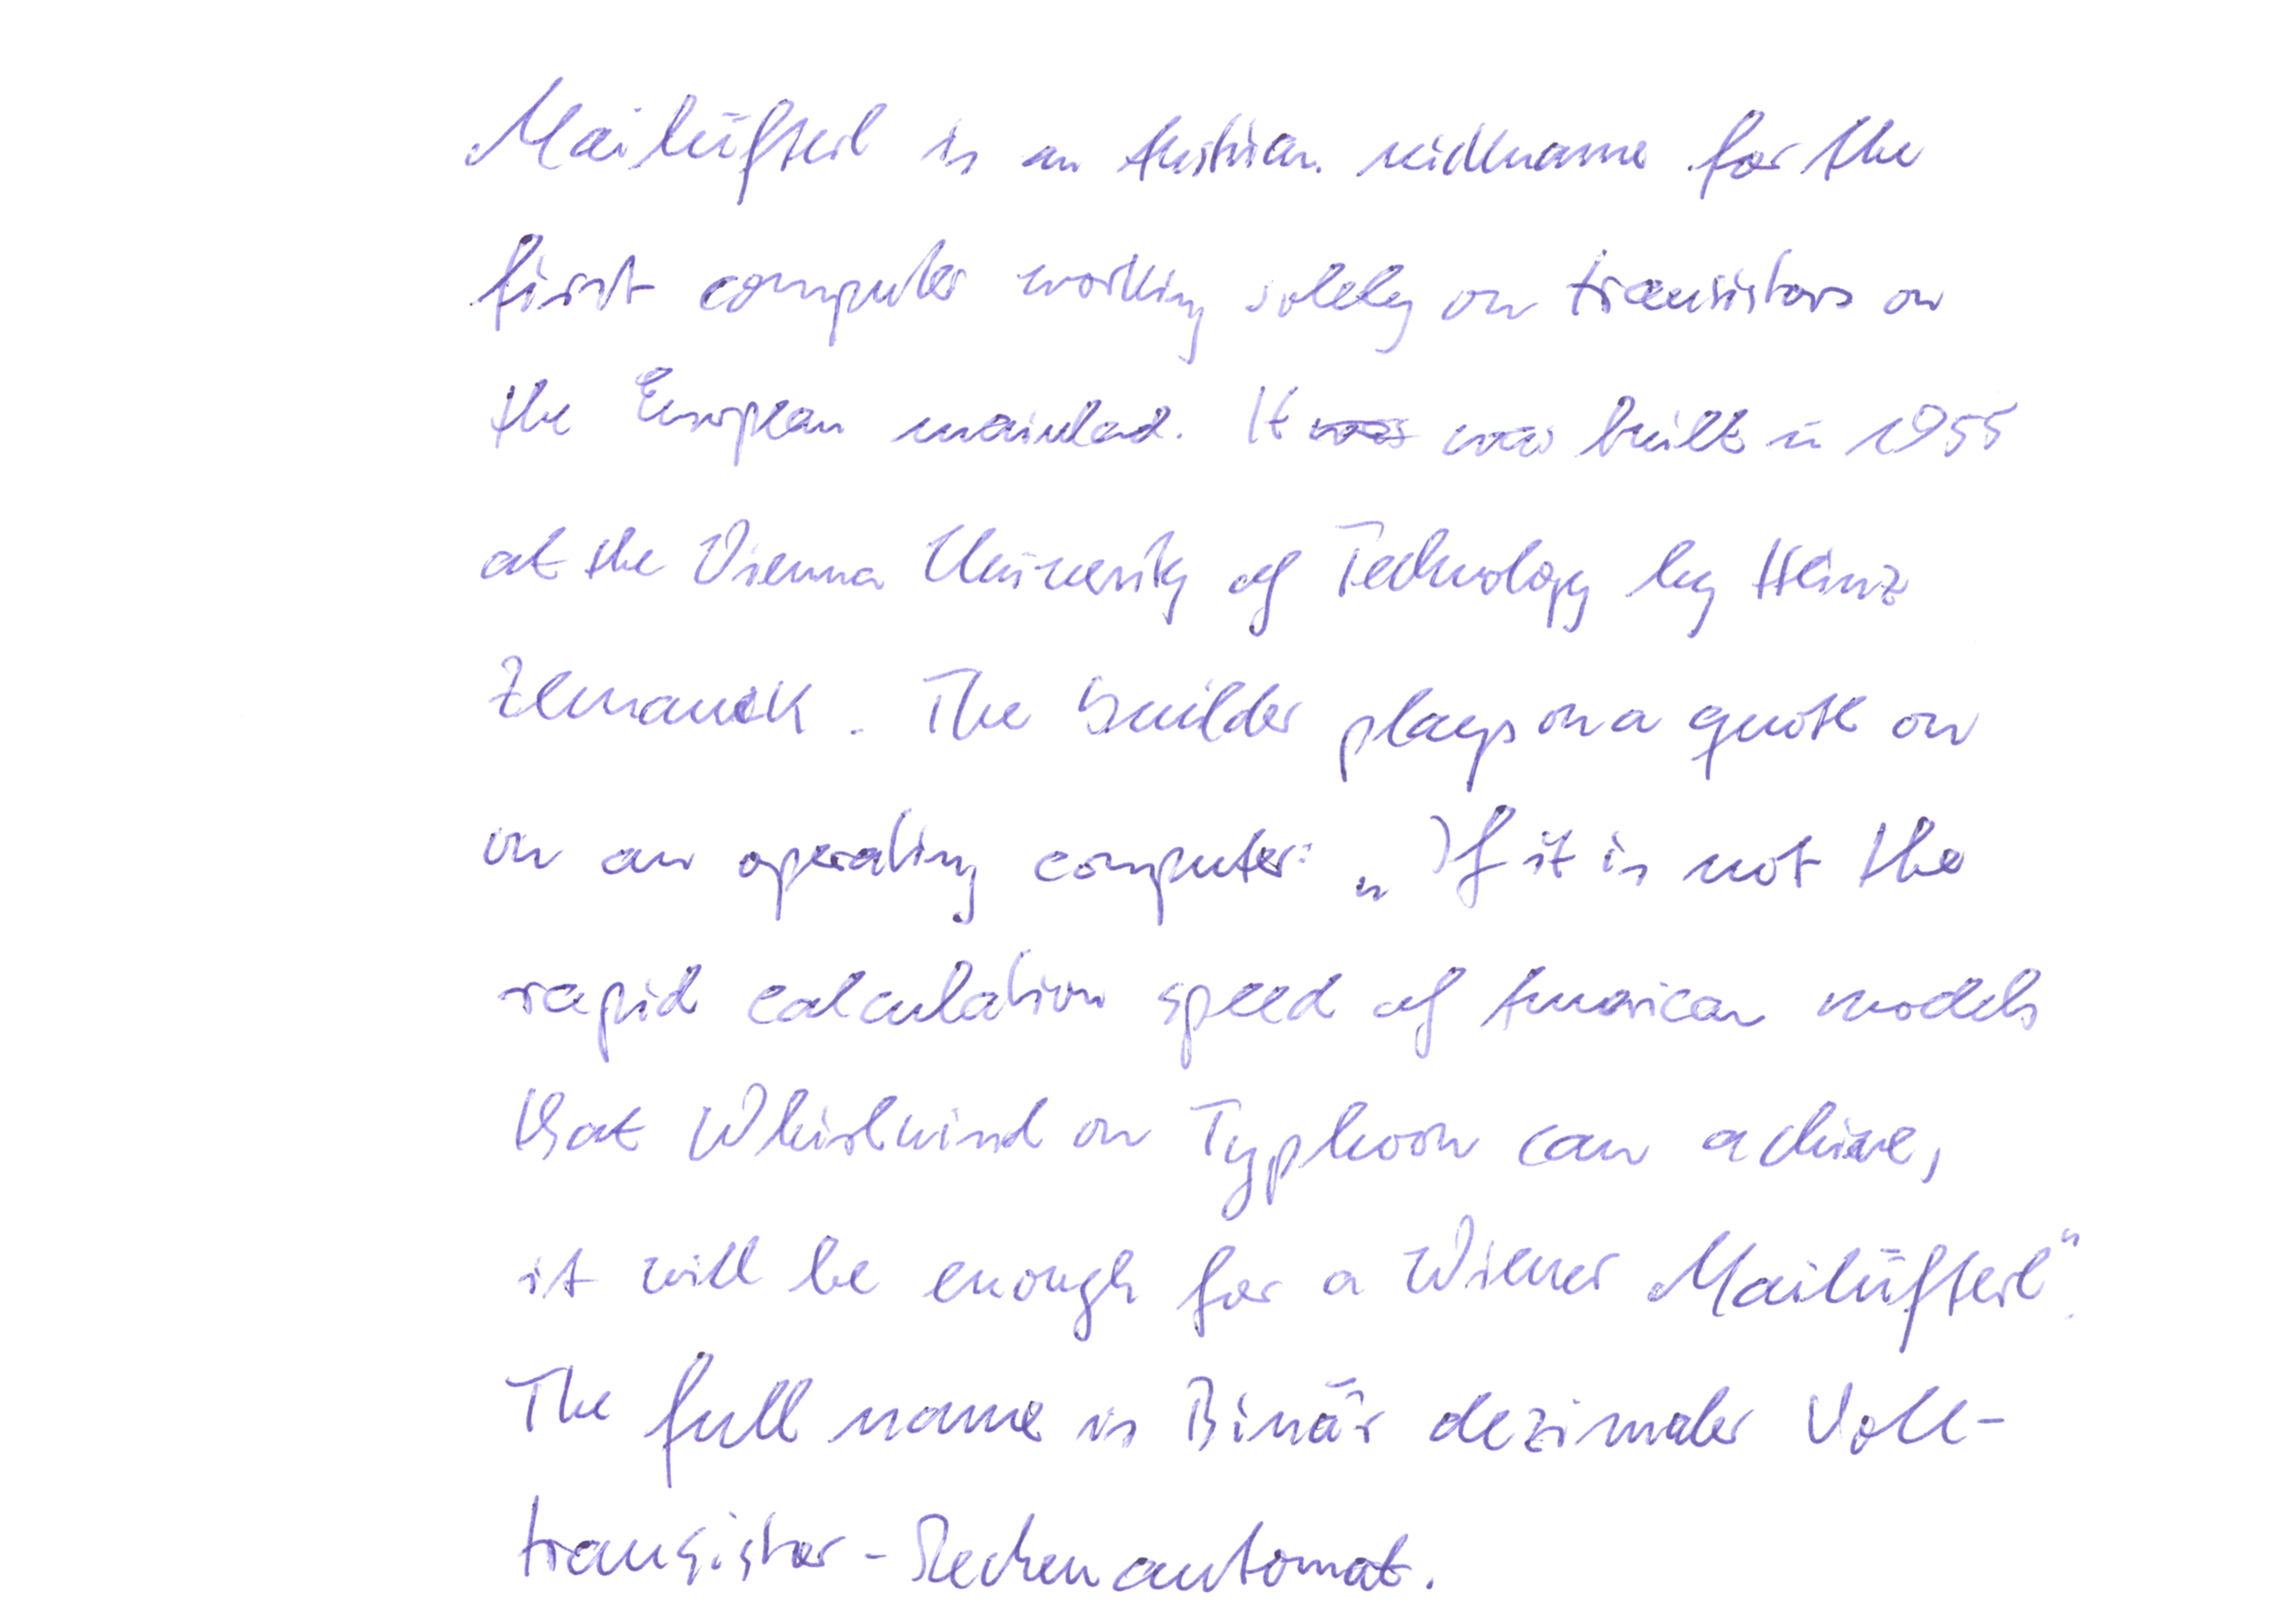 Mailüfterl is an Austrian nickname for the
first computer working solely on transistors on
the European mainland. It was was built in 1955
at the Vienna University of Technology by Heinz
Zemanek. The builder plays on a quote on
on an operating computer: „If it is not the
rapid calculation speed of American models
that Whirlwind or Typhoon can achieve,
it will be enough for a Wiener Mailüfterl“.
The full name is Binär dezimaler Voll-
transistor-Rechenautomat.